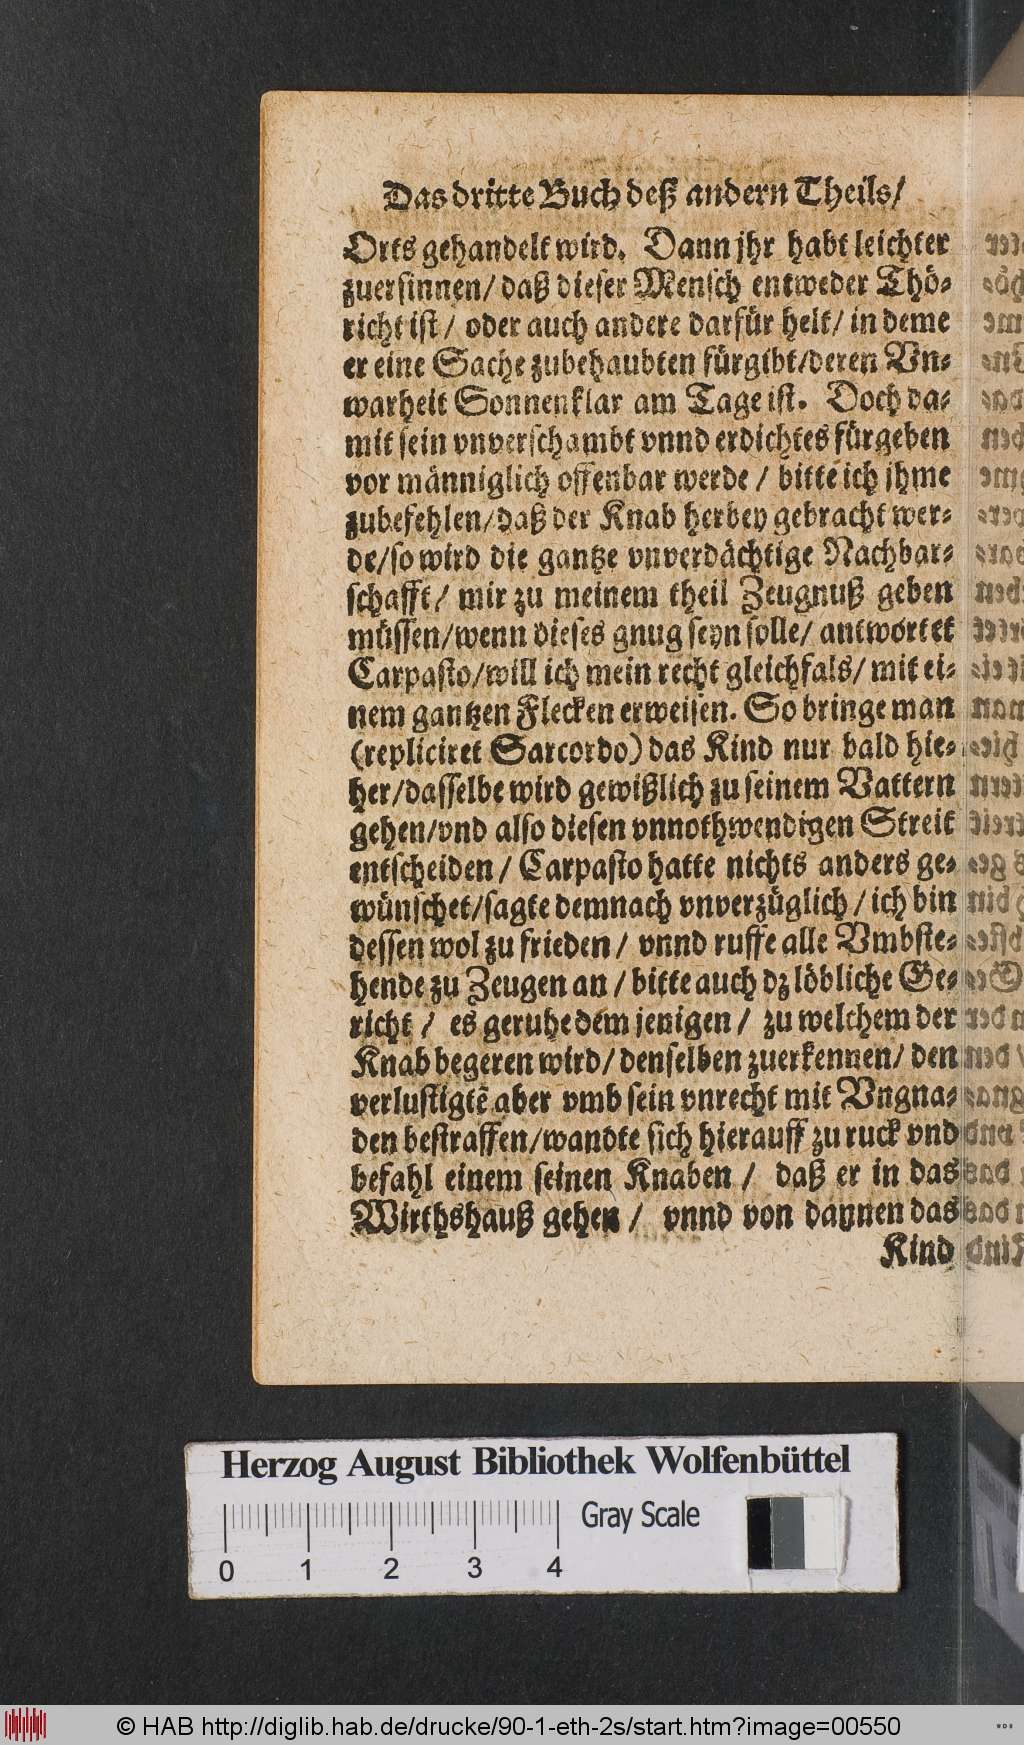 Das dritte Buch deß andern Theils/
Orts gehandelt wird. Dann jhr habt leichter
zuersinnen/daß dieser Mensch entweder Thö-
richt ist/ oder auch andere darfür helt/ in deme
er eine Sache zubehaubten fürgibt/deren Vn-
warheit Sonnenklar am Tage ist. Doch da-
mit sein vnverschambt vnnd erdichtes fürgeben
vor männiglich offenbar werde / bitte ich jhme
zubefehlen/daß der Knab herbey gebracht wer-
de/so wird die gantze vnverdächtige Nachbar-
schafft/ mir zu meinem theil Zeugnuß geben
müssen/wenn dieses gnug seyn solle/ antwortet
Carpasto/will ich mein recht gleichfals/ mit ei-
nem gantzen Flecken erweisen. So bringe man
(repliciret Sarcordo) das Kind nur bald hie-
her/dasselbe wird gewißlich zu seinem Vattern
gehen/vnd also diesen vnnothwendigen Streit
entscheiden / Carpasto hatte nichts anders ge-
wünschet/sagte demnach vnverzüglich / ich bin
dessen wol zu frieden / vnnd ruffe alle Vmbste-
hende zu Zeugen an / bitte auch dz löbliche Ge-
richt / es geruhe dem jenigen / zu welchem der
Knab begeren wird/ denselben zuerkennen/ den
verlustigtē aber vmb sein vnrecht mit Vngna-
den bestraffen/wandte sich hierauff zu ruck vnd
befahl einem seinen Knaben / daß er in das
Wirthshauß gehen / vnnd von dannen das
Kind
Herzog August Bibliothek Wolfenbüttel
Gray Scale
0 1 2 3 4
© HAB http://diglib.hab.de/drucke/90-1-eth-2s/start.htm?image=00550